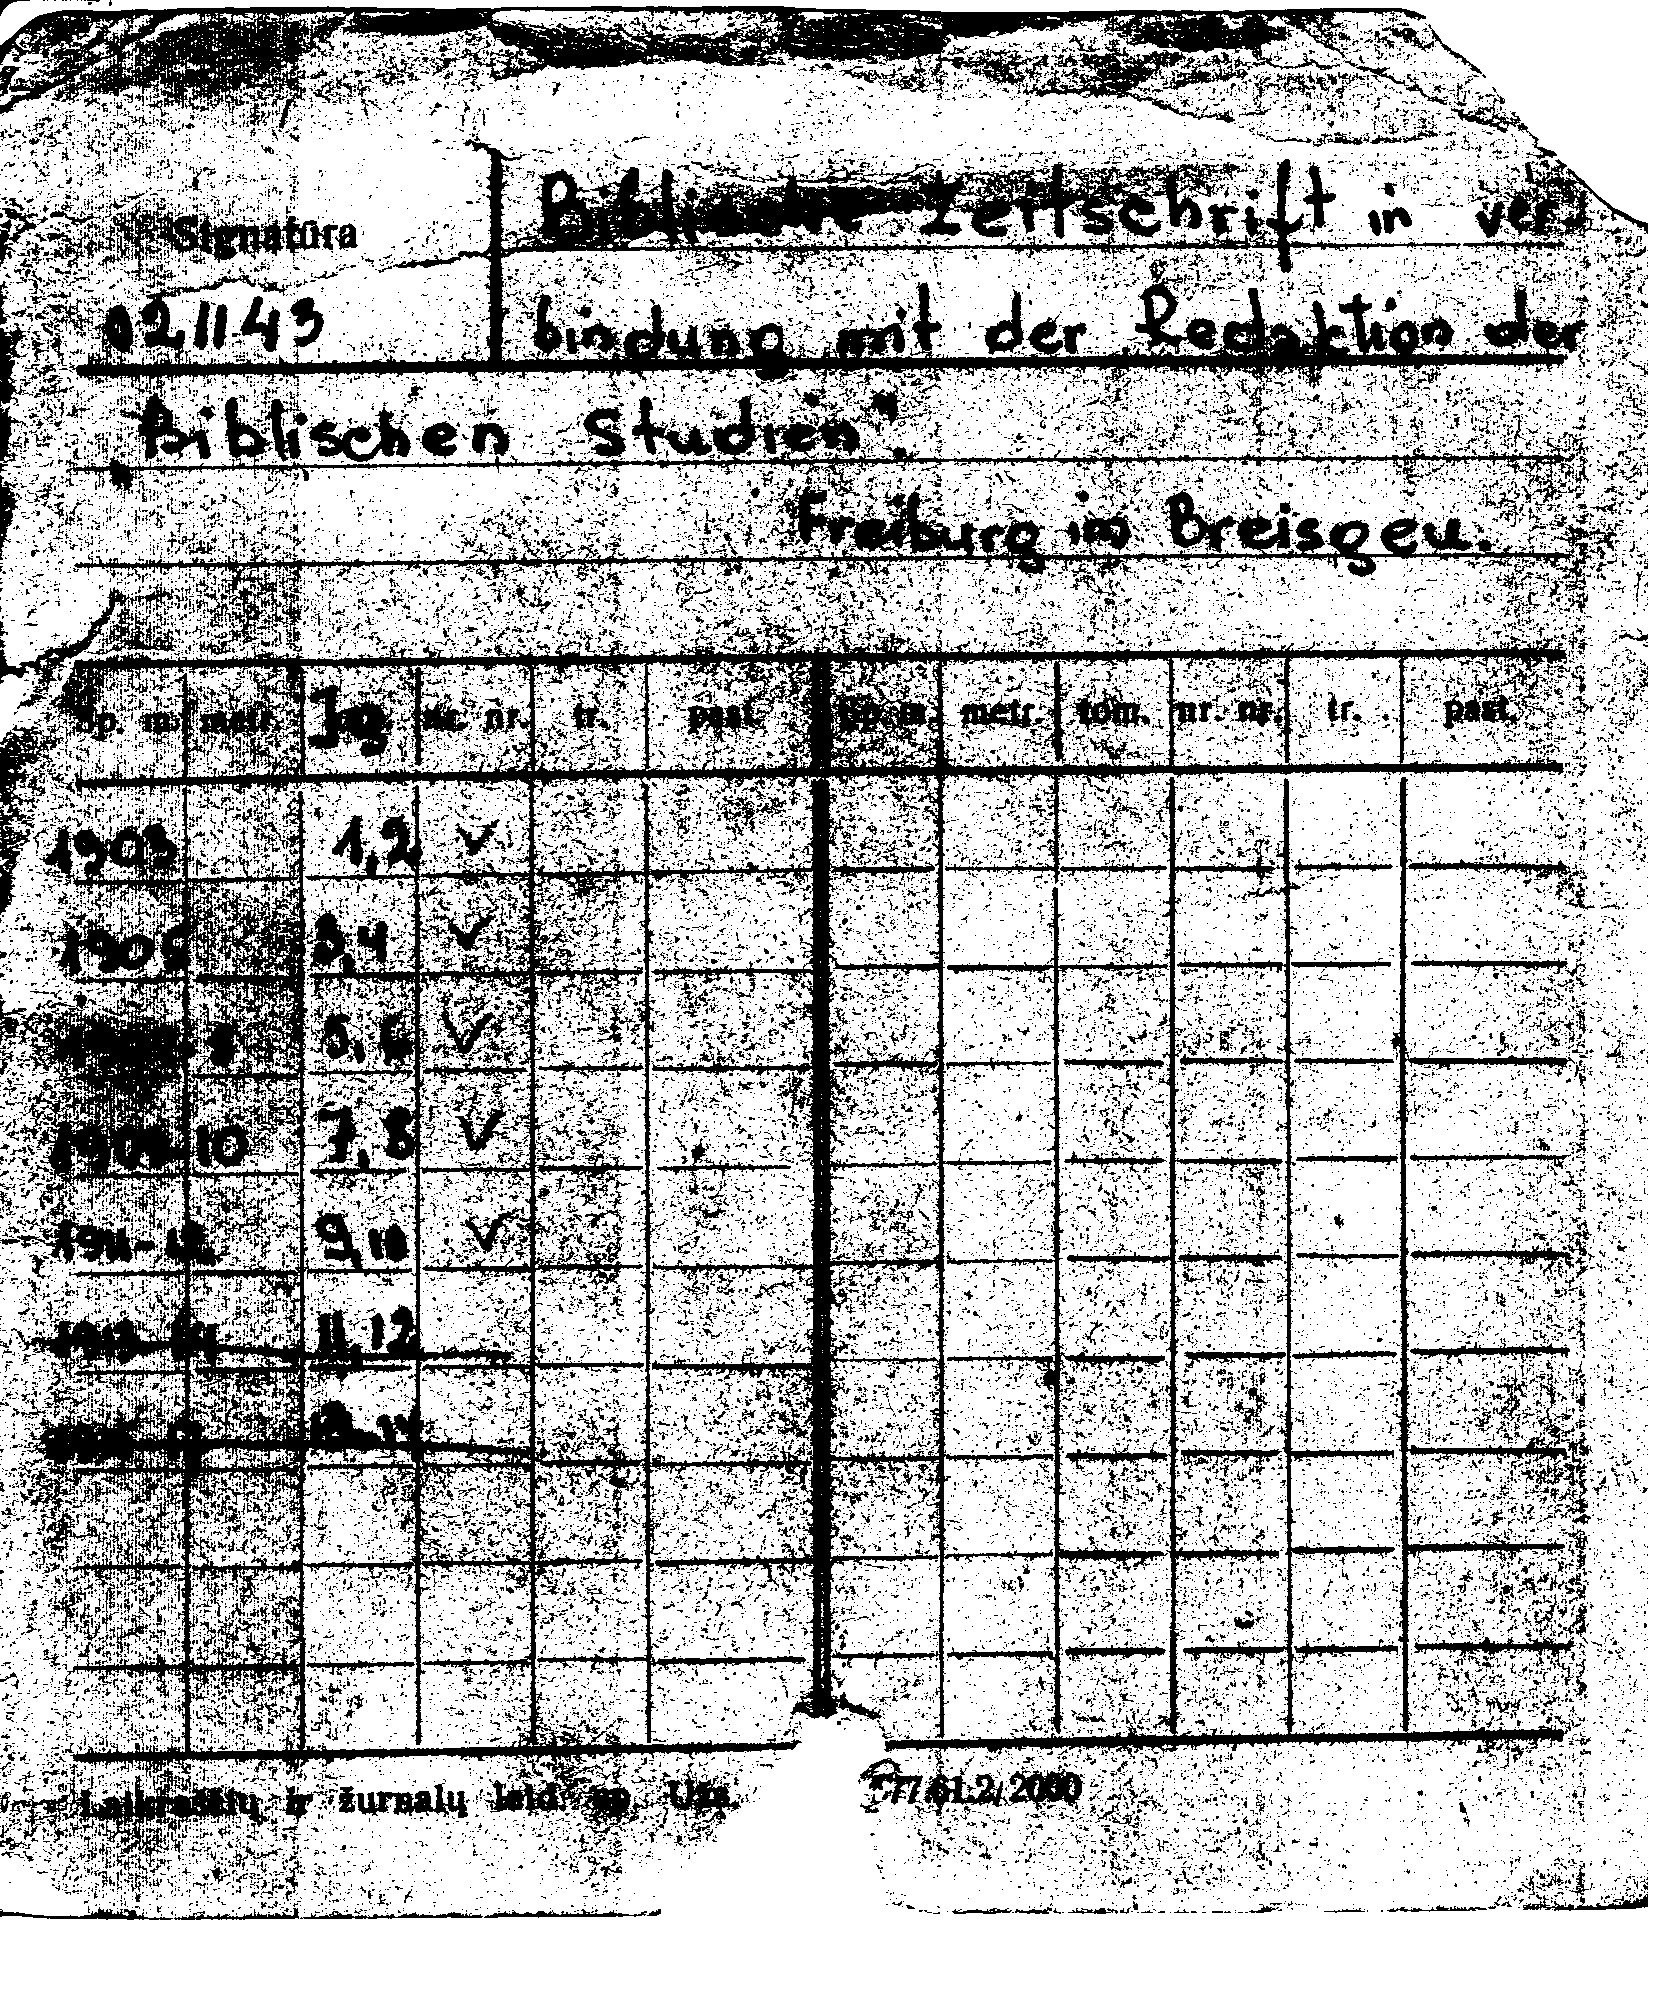 Signatūra
Biblische Zeitschrift in ver-
021143
bindung mit der Redaktion der
"Biblischen Studien".
Freiburg im Breisgeu.
Sp. m. metr. Jg. nr. nr. tr. past. Sp. m. metr. tom. nr. nr. tr. past.
1903 1,2 ✓
1905 3,4 ✓
8 5,6 ✓
1909-10 7,8 ✓
1911-12 9,10 ✓
1913 14 11,12
14
Laikraščių ir žurnalų leid. sp. Užs. 77.61.2/2000